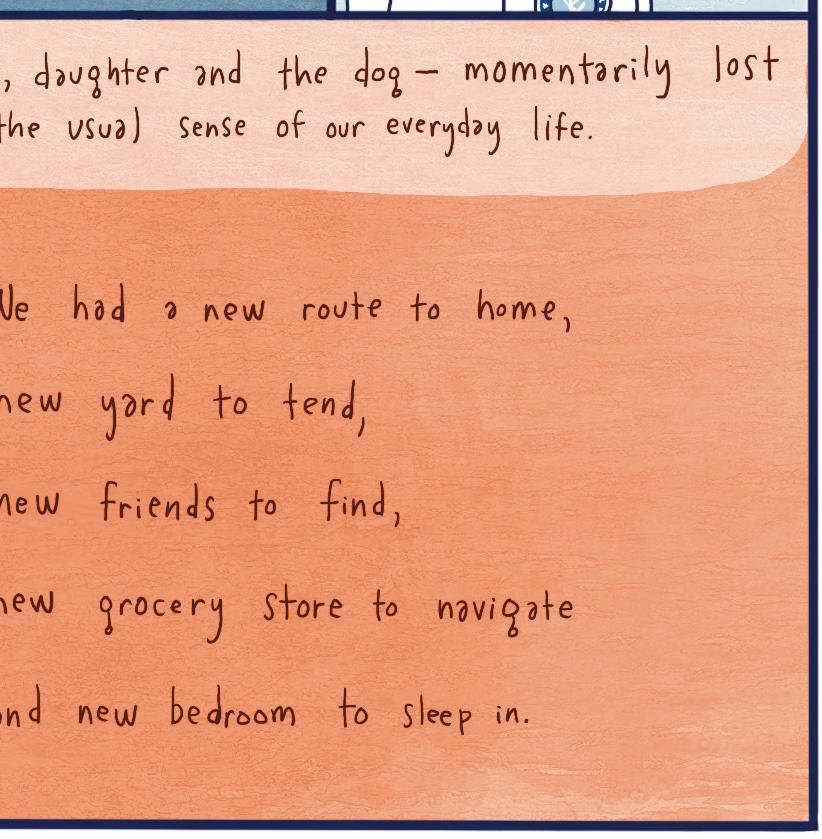 , daughter and the dog — momentarily lost
the usual sense of our everyday life.
We had a new route to home,
new yard to tend,
new friends to find,
new grocery store to navigate
and new bedroom to sleep in.